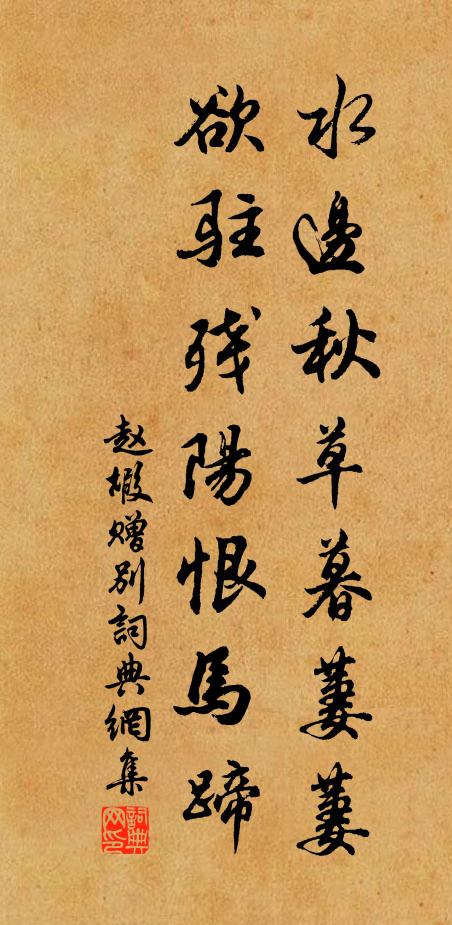 水邊秋草暮萋萋
欲駐残陽恨馬蹄
赵嘏贈別詞典網集
詞典网印